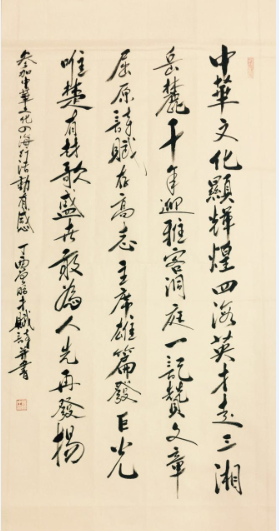 中華文化顯輝煌四海英才走三湘
岳麓千年迎雅客洞庭一記贊文章
屈原詩賦存高志主席雄篇發巨光
唯楚有材歌盛世敢為人先再發揚
參加中華文化四海行活動有感 丁酉 才賦詩并書